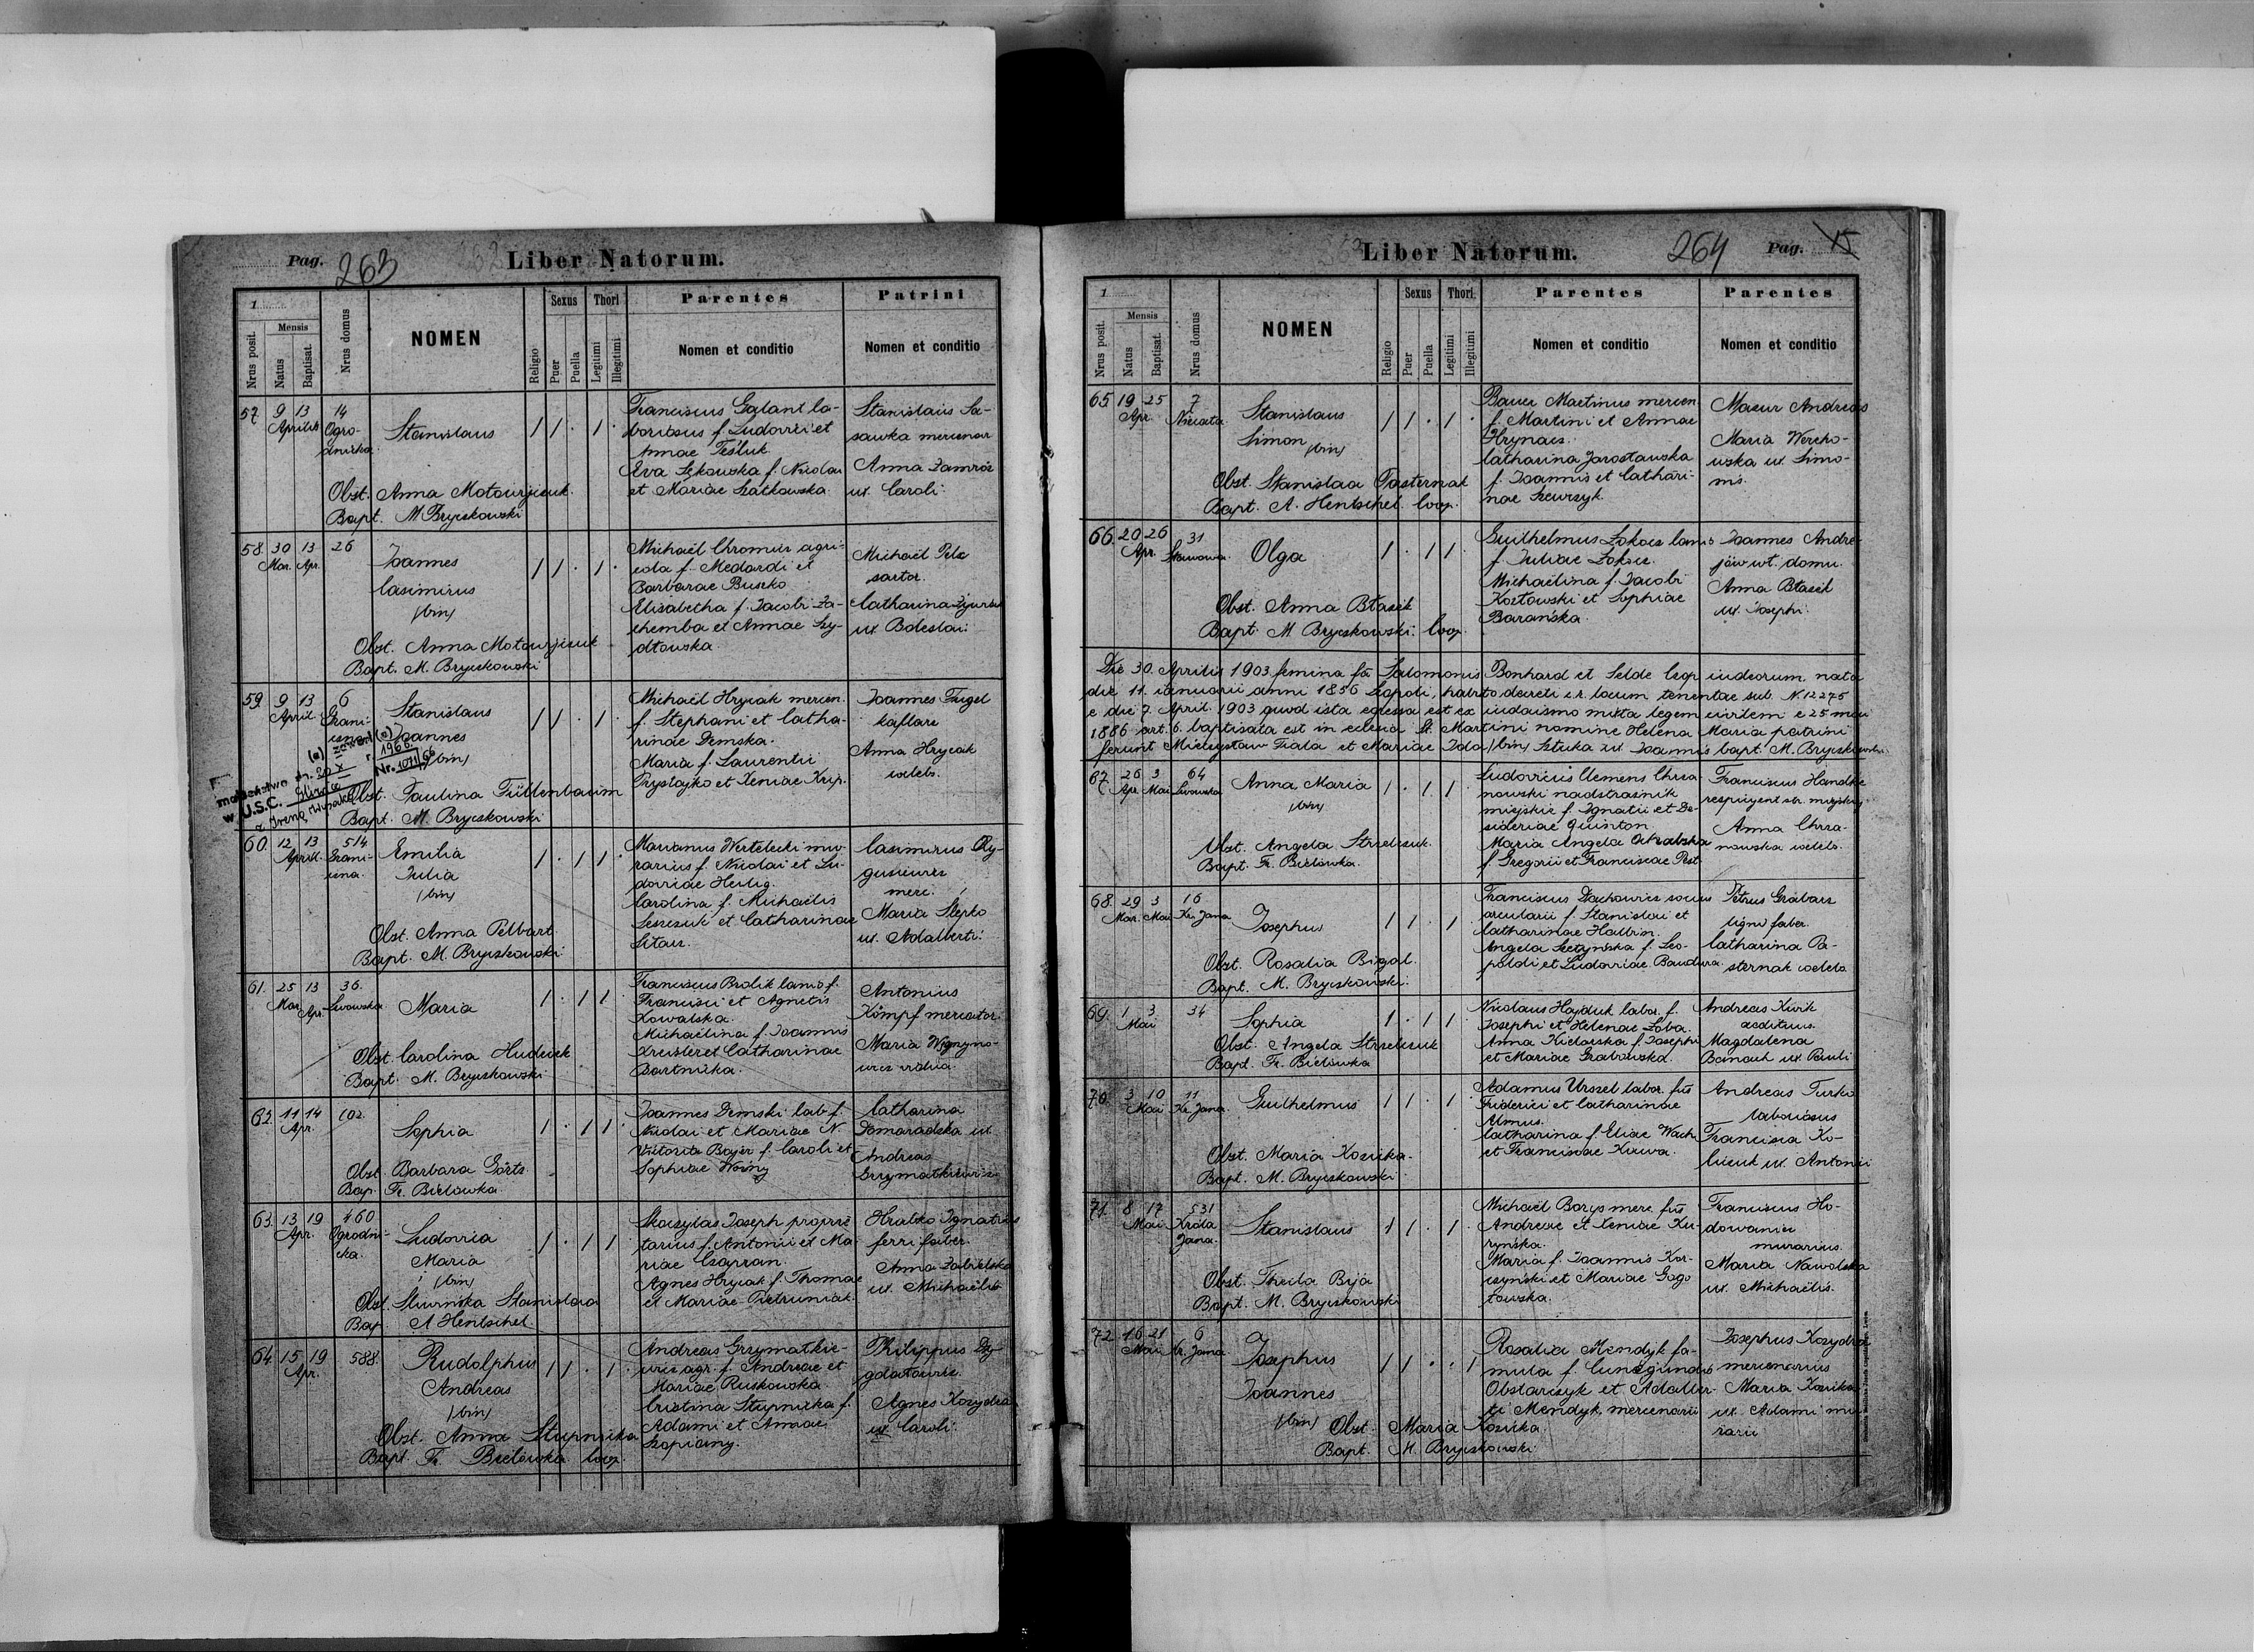 Pag. 263
Liber Natorum.
1
Nrus posit.
Mensis
Natus
Baptisat.
Nrus domus
NOMEN
Religio
Sexus
Puer
Puella
Thori
Legitimi
Illegitimi
Parentes
Nomen et conditio
Patrini
Nomen et conditio
57. 9 13 Aprilis
14 Ogro-
dnicka
Stanislaus
Obst. Anna Motowijczuk
Bapt. M Bryczkowski
Franciscus Galant la-
boriosus f. Ludovici et
Annae Teśluk
Eva Sękowska f. Nicolai
et Mariae Szatkowska
Stanislaus Sa-
sawka mercenar
Anna Zamróz
ux. Caroli.
58. 30 13 26
Mar. Apr.
Joannes
Casimirus
(bin)
Obst. Anna Motowijczuk
Bapt. M. Bryczkowski
Michaël Chromis agri-
cola f. Medardi et
Barbarae Buszko
Elisabetha f. Jacobi Za-
chemba et Annae Szy-
dłowska
Michaël Pelc
sartor.
Catharina
ux Boleslai
59. 9 13 6
April. Grani-
czna
Stanislaus
Joannes
(bin)
małżeństwo zawarł (a)
dn. 20 X r. 1966
w U.S.C. Nr. 1071/66
Obst. Paulina Tüllenbaum
Bapt. M. Bryczkowski
Michaël Hrycak mercen.
f. Stephani et Catha-
rinae Demska.
Maria f. Laurentii
Prystajko et Xeniae Krip.
Joannes Fugel
kaflarz
Anna Hrycak
caelebs.
60. 12 13 514
April. Grani-
czna.
Emilia
Julia
(bin)
Obst. Anna Pelbart
Bapt. M. Bryczkowski
Marianus Wertelecki mu-
rarius f. Nicolai et Lu-
doviciae Heilig.
Carolina f. Michaëlis
Leszczuk et Catharinae
Sitarz.
Casimirus Ry-
gusiewicz
merc.
Maria Stepko
ux. Adalberti.
61. 25 13 36.
Mar. Apr. Lwowska
Maria
Obst. Carolina Hudeček
Bapt. M. Bryczkowski
Franciscus Brolik lanio f.
Francisci et Agnetis
Kowalska.
Michaëlina f. Joannis
Kreisler et Catharinae
Bartnicka.
Antonius
Kömpf mercator.
Maria
vidua.
62. 11 14 102.
Apr.
Sophia
Obst. Barbara Görtz
Bap. Fr. Bielówka
Joannes Demski lab f.
Nicolai et Mariae N.
Victoria Bajer f. Caroli et
Sophiae Woźny
Catharina
Domaradzka ux.
Andreas
Grzymałkiewicz
63. 13 19 460
Apr. Ogrodni-
cka.
Ludovica
Maria
(bin)
Obst. Sliwińska Stanislava
Bap. A Hentschel.
Skarzylas Joseph proprie
tarius f. Antonii et Ma-
riae Czapran.
Agnes Hrycak f. Thomae
et Mariae Pietruniak.
Hratko Ignatius
ferri faber.
Anna Zabielska
ux. Michaëlis
64. 15 19 588.
Apr.
Rudolphus
Andreas
(bin)
Obst. Anna Stupnicka
Bapt. Fr. Bielówka Coop.
Andreas Grzymałkie-
wicz agr. f. Andreae et
Mariae Ruskowska
Cristina Stupnicka f.
Adami et Annae
Szopiany.
Philippus Dy-
gdałowicz.
Agnes Kozydra
ux Caroli.
Liber Natorum.
264
Pag. 15
1
Nrus posit.
Mensis
Natus
Baptisat.
Nrus domus
NOMEN
Religio
Sexus
Puer
Puella
Thori
Legitimi
Illegitimi
Parentes
Nomen et conditio
Parentes
Nomen et conditio
65 19 25 7
Apr.
Stanislaus
Simon
(bin)
Obst. Stanislaa Pasternak
Bapt. A. Hentschel. Coop.
Bauer Martinus mercen
f. Martini et Annae
Hrynacz.
Catharina Jarosławska
f. Joannis et Cathari-
nae Szewczyk.
Mazur Andreas
Maria Wercho-
wska ux. Simo-
nis.
66. 20 26 31
Apr.
Olga
Obst. Anna Błazik
Bapt. M Bryczkowski. Coop.
Guilhelmus Łokocz lanio
f. Juliae Łokocz.
Michaëlina f. Jacobi
Kozłowski et Sophiae
Barańska.
Joannes Andre-
jów wł. domu.
Anna Błazik
ux. Josephi.
Die 30. Aprilis 1903 femina fa Salomonis Bonhard et Selde Czop iudeorum nata
die 11. ianuarii anni 1856 Leopoli, habito decreti c.r. locum tenentae sub. N 12275
e die 7. April. 1903 quod ista egressa est ex iudaismo iuxta legem civilem e 25 maii
1886 art. 6. baptisata est in eclesia St. Martini nomine Helena Maria patrini
ferunt Mieczysław Fiala et Mariae Ida (bin) Sztuka ux Joannis bapt. M. Bryczkowski.
67. 26 3 64
Apr. Mai Lwowska
Anna Maria
(bin)
Obst. Angela Strzelczuk.
Bapt. Fr. Bielówka.
Ludovicus Clemens Chrza-
nowski nadstrażnik
miejskie f. Ignatii et De-
sideriae Quinton.
Maria Angela
f. Gregorii et Franciscae Pest.
Franciscus Handke
respicyent str. miejskiej
Anna Chrza-
nowska caelebs.
68. 29 3 16
Mar. Mai Kr. Jana
Josephus
Obst. Rosalia Bigal.
Bapt. M. Bryczkowski.
Franciscus Dachowicz socius
arcularii f. Stanislai et
Catharinae Halbin.
Angela Szetyńska f. Leo-
poldi et Ludoviciae Bandura.
Petrus Grabarz
ligni faber.
Catharina Pa-
sternak caelebs
69. 1 3. 34
Mai
Sophia
Obst. Angela Strzelczuk
Bapt. Fr. Bielówka
Nicolaus Hajduk labor. f.
Josephi et Helenae Łoba.
Anna Kielarska f. Josephi
et Mariae Grabowska.
Andreas Kiwik
aedituus.
Magdalena
Banach ux. Pauli
70. 3 10 11
Mai Kr. Jana
Guilhelmus
Obst. Maria Kozicka.
Bapt. M. Bryczkowski.
Adamus Urszel labor. fus
Friderici et Catharinae
Almus.
Catharina f. Eliae Wach
et Franciscae Kiawa.
Andreas Turko
laboriosus
Francisca Ko-
liciuk ux. Antonii
71. 8 17 531
Mai Króla
Jana.
Stanislaus
Obst. Thecla Bija
Bapt. M. Bryczkowski
Michaël Borys merc. fus
Andreae et Xeniae Ku-
ryńska.
Maria f. Joannis Kor-
czyński et Mariae Gogo
towska.
Franciscus Ho-
dowaniec
murarius.
Maria Nawolska
ux. Michaëlis.
72. 16 21 6
Mai Kr. Jana
Josephus
Joannes
(bin)
Obst. Maria Kozicka.
Bapt. M. Bryczkowski
Rosalia Mendyk fa-
mula f. Cunegundis
Obstarczyk et Adalber-
ti Mendyk, mercenarii
Josephus Kozydra
mercenarius
Maria Kozicka
ux. Adami mu-
rarii